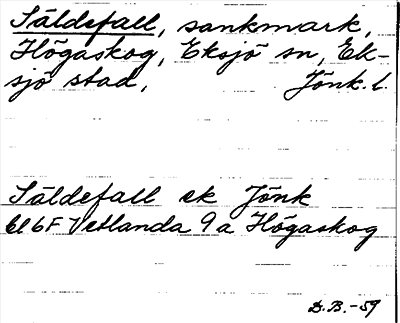 Säldefall, sankmark,
Högaskog, Eksjö sn, Ek-
sjö stad, Jönk. l.
Säldefall ek Jönk
6F Vetlanda 9a Högaskog
D.B.-59